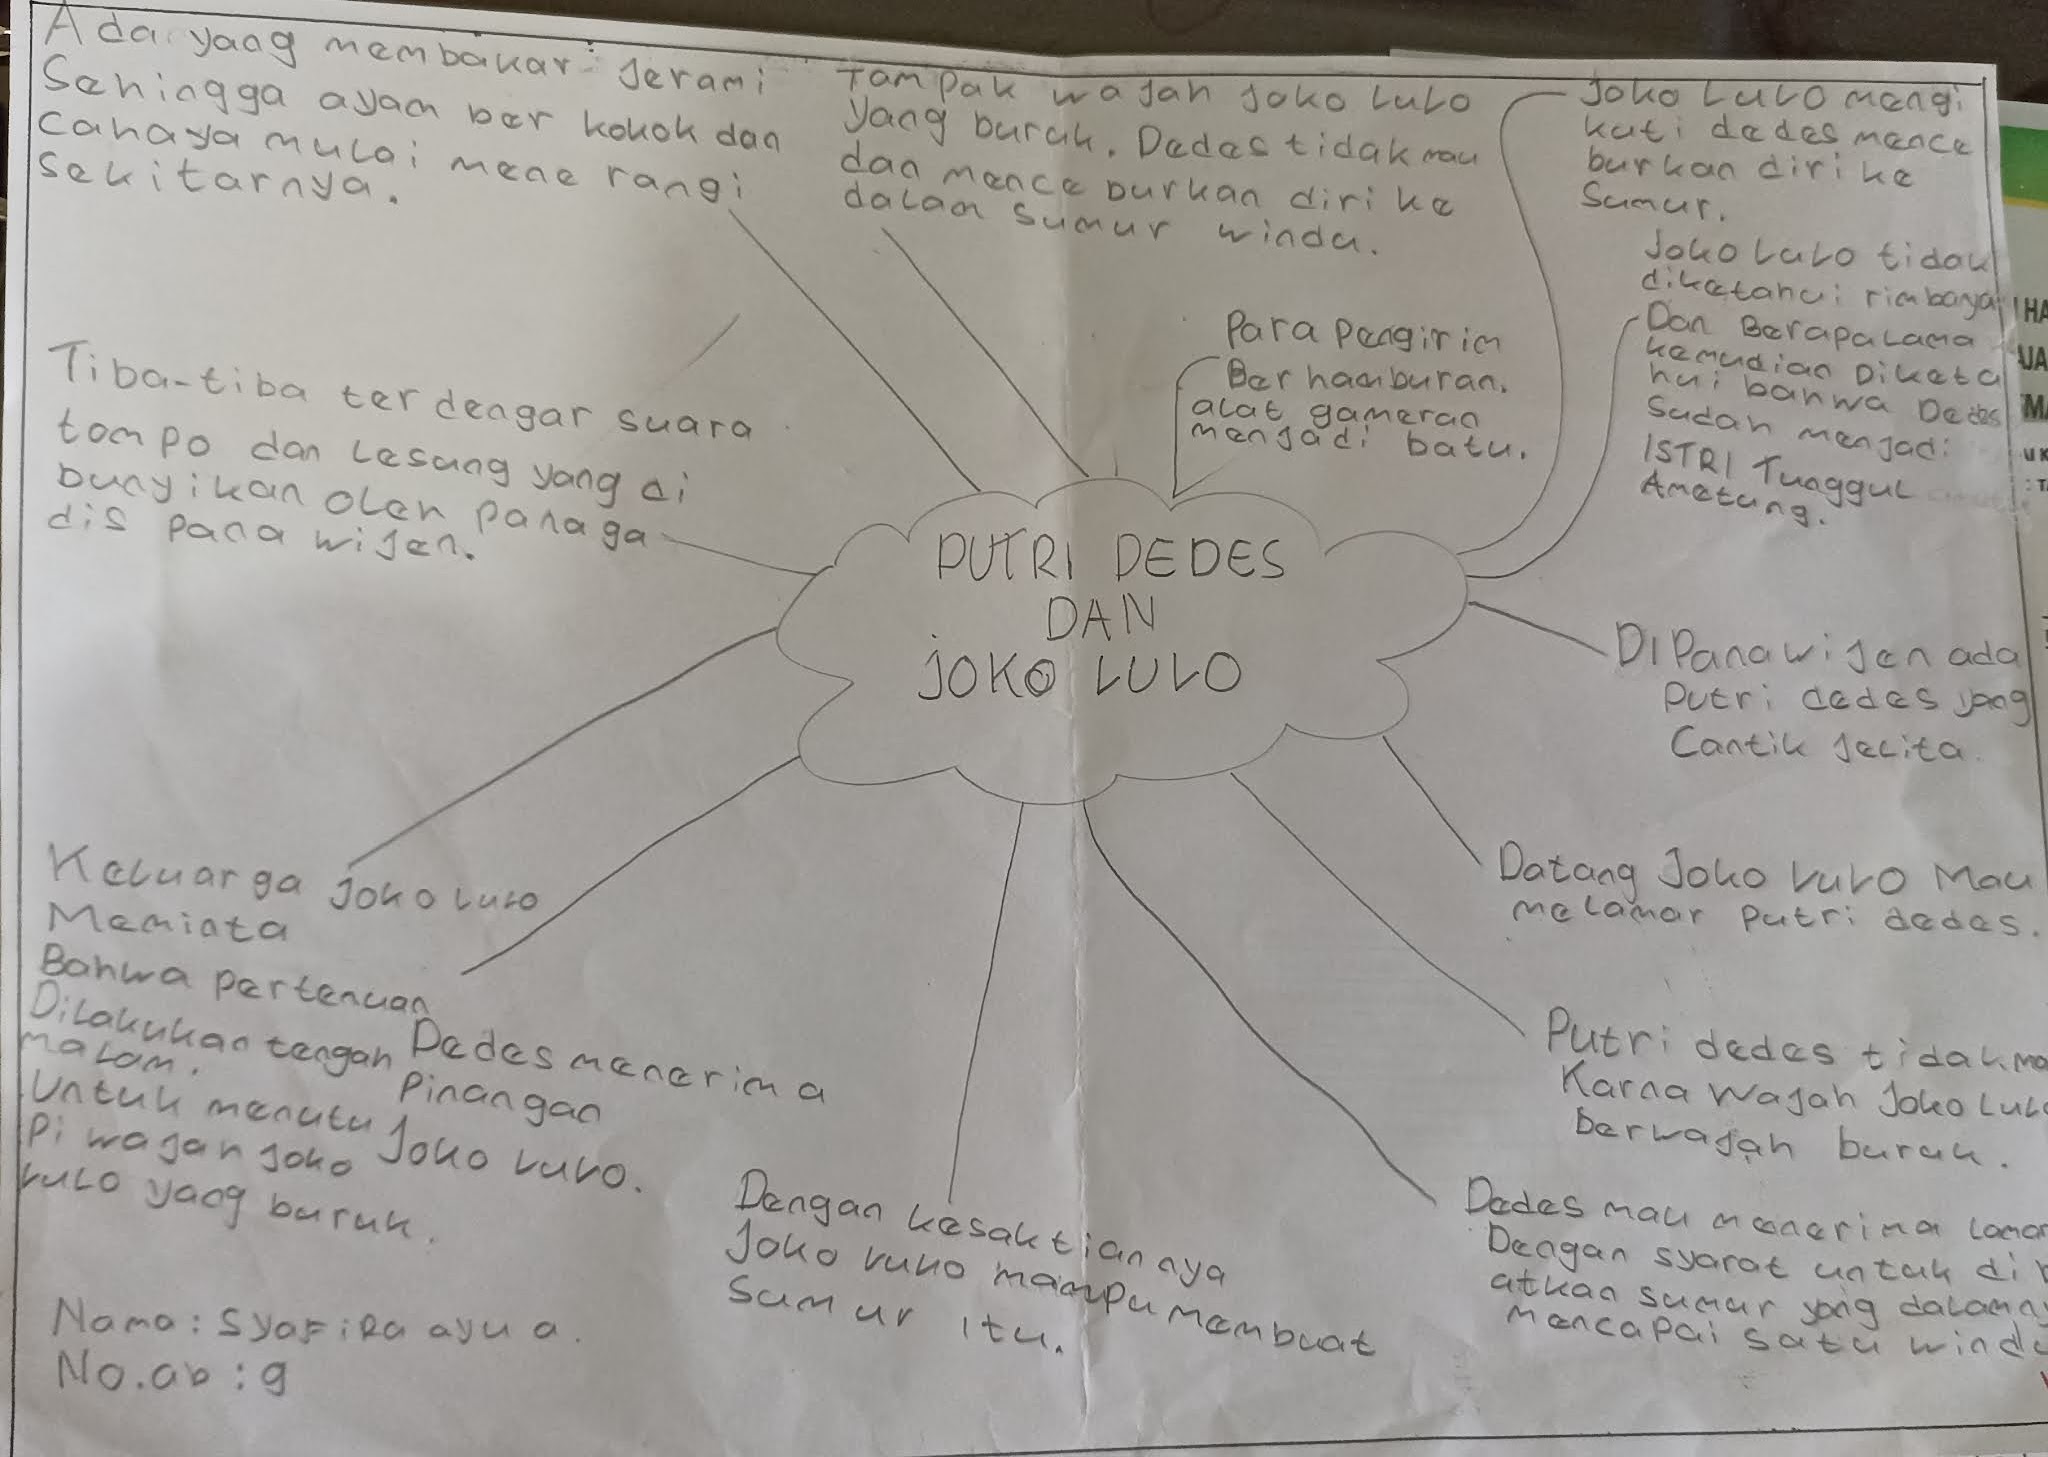 Ada yang membakar jerami
Sehingga ayam ber kokok dan
cahaya mulai mene rangi
sekitarnya.
Tampak wajah joko lulo
yang buruk. Dedes tidak mau
dan mence burkan diri ke
dalam sumur windu.
joko lulo mengi
kuti dedes mence
burkan diri ke
Sumur.
Joko lulo tidak
diketahui rimbanya
Dan Berapa lama
kemudian Diketa
hui bahwa Dedes
Sudah menjadi
ISTRI Tunggul
Ametung.
Para pengirim
Ber hamburan.
alat gameran
menjadi batu.
Tiba-tiba ter dengar suara
tompo dan Lesung yang di
bunyikan oleh panaga
dis pana wijen.
PUTRI DEDES
DAN
JOKO LULO
DI Panawijen ada
Putri dedes yang
Cantik jelita.
Datang Joko lulo Mau
melamar putri dedes.
Putri dedes tidak
Karna wajah Joko
berwajah buruk.
Dedes mau menerima
Dengan syarat untuk di
atkan sumur yang
mencapai satu
Dengan kesaktiannya
Joko lulo mampu membuat
Sumur itu.
Dedes menerima
Pinangan
Joko lulo.
Keluarga Joko lulo
Meminta
Bahwa pertemuan
Dilakukan tengah
malam.
Untuk menutu
Pi wajah joko
lulo yang buruk.
Nama: Syafira ayu a.
No.ab : 9
HA